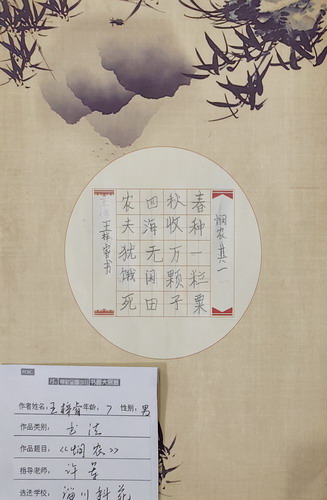 悯农其一
春种一粒粟
秋收万颗子
四海无闲田
农夫犹饿死
王梓睿书
作者姓名: 王梓睿 年龄: 7 性别: 男
作品类别: 书法
作品题目: 《悯农》
指导老师: 许星
选送学校: 淄川科苑